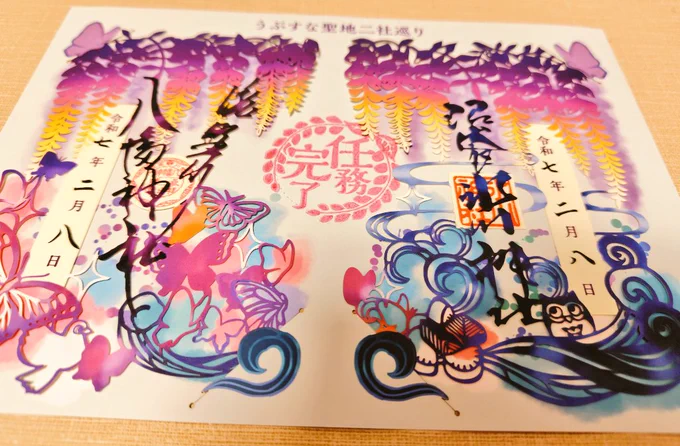 うぶすな聖地二社巡り
令和七年二月八日
氷川神社
任務
完了
八幡神社
令和七年二月八日